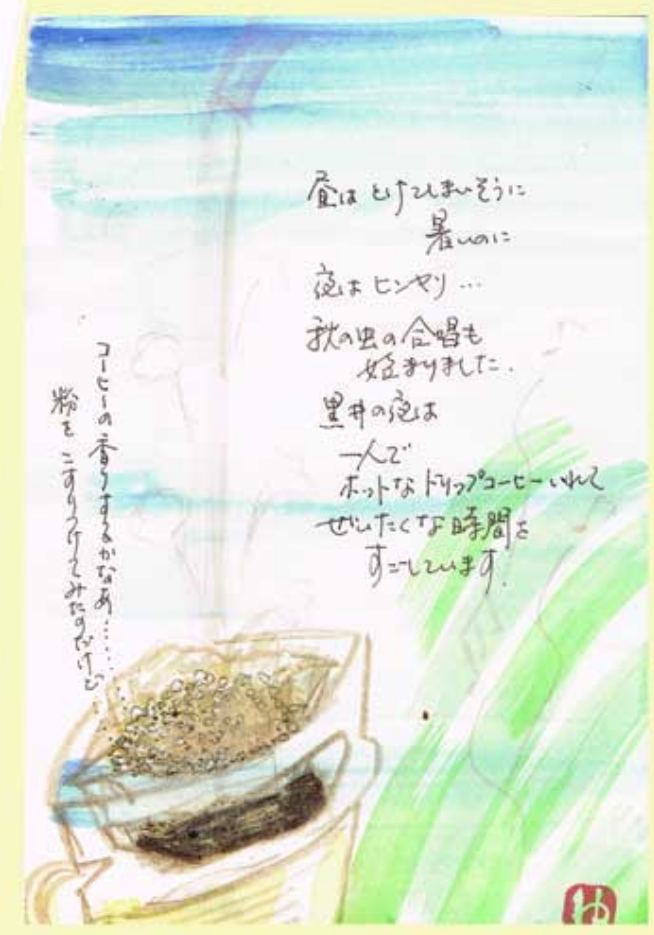 昼は とけてしまいそうに
暑いのに
夜は ヒンヤリ…
秋の虫の合唱も
始まりました.
黒井の夜は
一人で
ホットな ドリップコーヒー いれて
ぜいたくな 時間を
すごしています.
コーヒーの 香りするかなあ……
粉を こすりつけてみたのだけど
ゆ